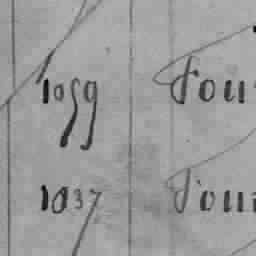 1059 Four
1037 Four